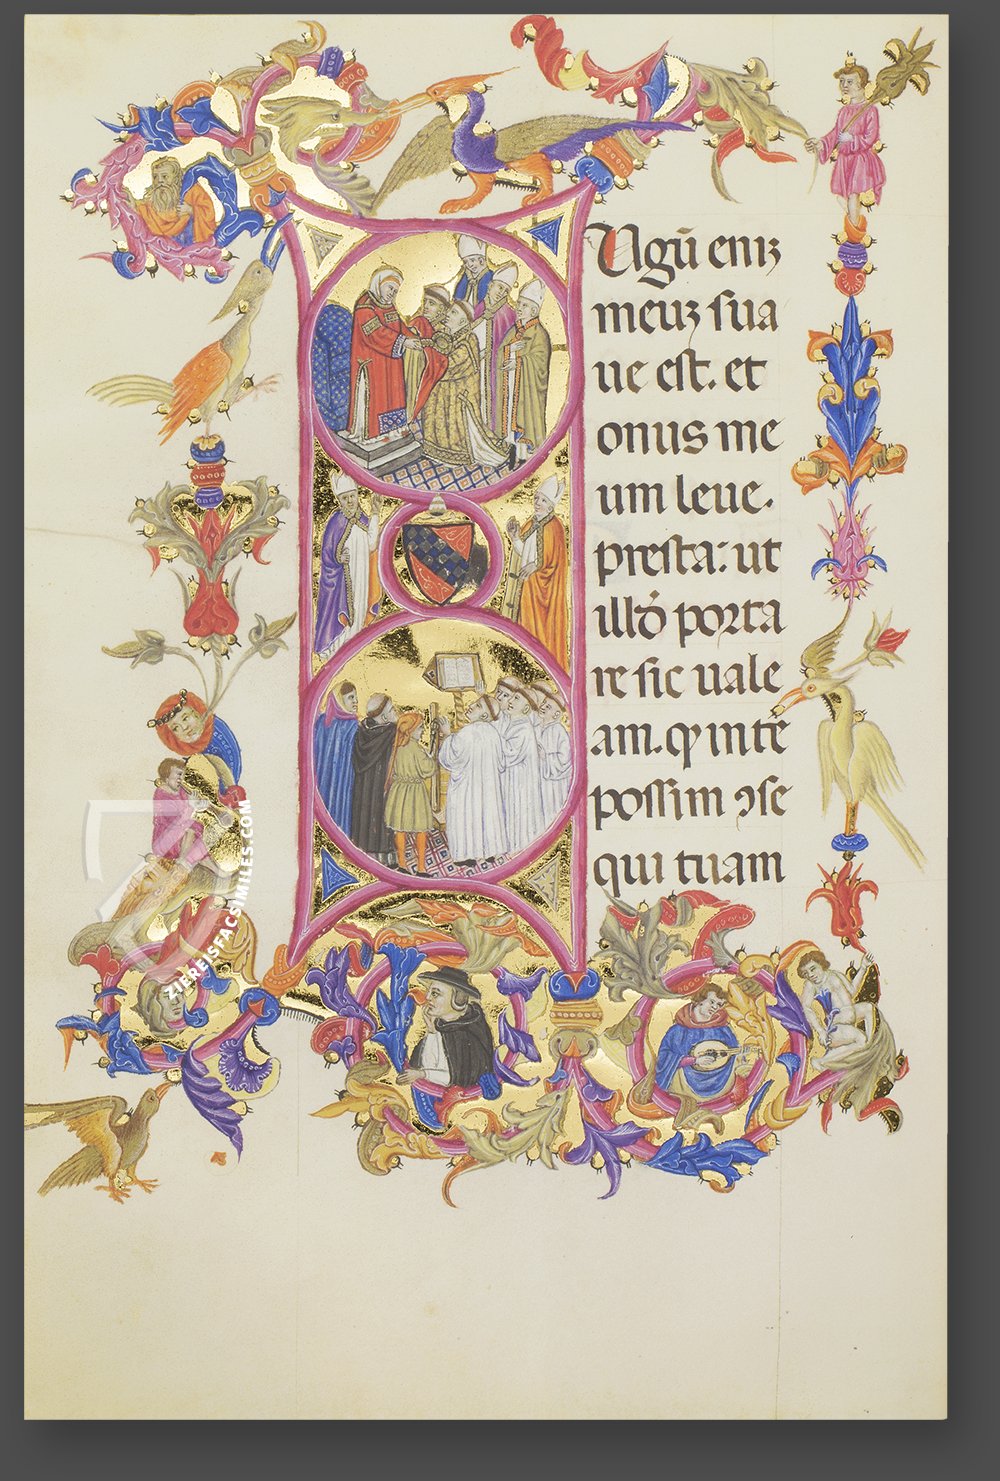 Iugū eniʒ
meuʒ ſua
ue eſt. et
onus me
um leue.
preſta: ut
illđ poꝛta
re ſic uale
am. ꝙ inte
poſſim ↄſe
qui tuam
ZIEREISFACSIMILES.COM